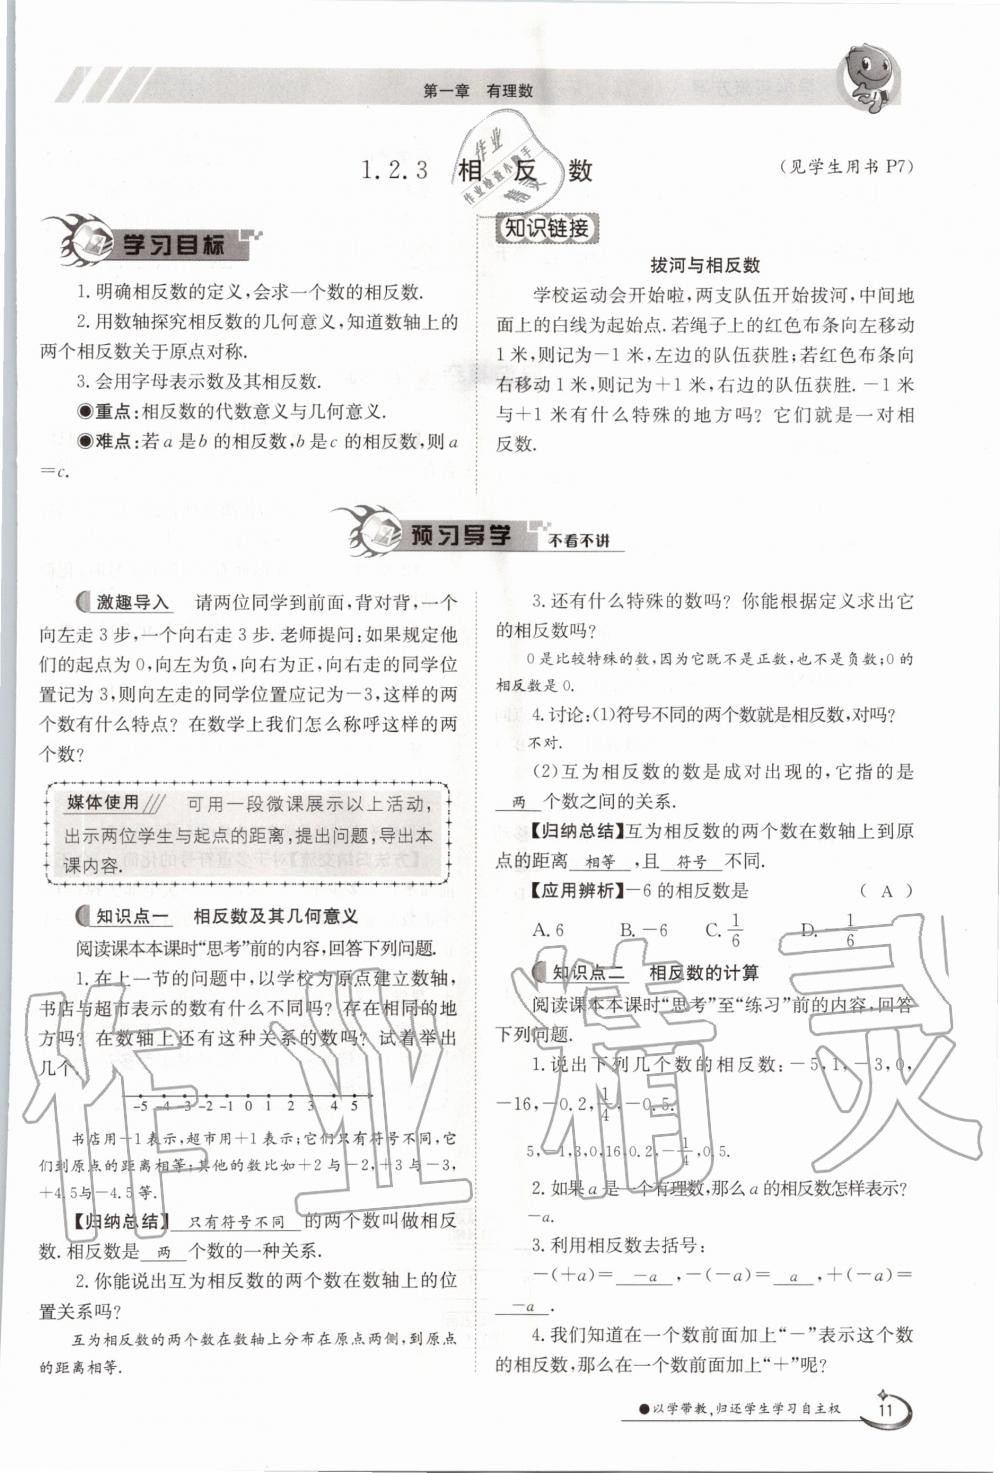 第一章 有理数
1.2.3 相反数
(见学生用书 P7)
学习目标
1.明确相反数的定义,会求一个数的相反数.
2.用数轴探究相反数的几何意义,知道数轴上的
两个相反数关于原点对称.
3.会用字母表示数及其相反数.
◉重点:相反数的代数意义与几何意义.
◉难点:若a是b的相反数,b是c的相反数,则a
=c.
知识链接
拔河与相反数
学校运动会开始啦,两支队伍开始拔河,中间地
面上的白线为起始点.若绳子上的红色布条向左移动
1米,新记为-1米,左边的队伍获胜;若红色布条向
右移动1米,新记为+1米,右边的队伍获胜.-1米
与+1米有什么特殊的地方吗?它们就是一对相
反数.
预习导学 不看不讲
激趣导入 请两位同学到前面,背对背,一个
向左走3步,一个向右走3步.老师提问:如果规定他
们的起点为0,向左为负,向右为正,向右走的同学位
置记为3,则向左走的同学位置应记为-3,这样的两
个数有什么特点?在数学上我们怎么称呼这样的两
个数?
媒体使用 可用一段微课展示以上活动,
出示两位学生与起点的距离,提出问题,导出本
课内容.
知识点一 相反数及其几何意义
阅读课本本课时“思考”前的内容,回答下列问题.
1.在上一节的问题中,以学校为原点建立数轴,
书店与超市表示的数有什么不同吗?存在相同的地
方吗?在数轴上还有这种关系的数吗?试着举出
几个.
-5 -4 -3 -2 -1 0 1 2 3 4 5
书店用-1表示,超市用+1表示;它们只有符号不同,它
们到原点的距离相等;其他的数比如+2与-2,+3与-3,
+4.5与-4.5等.
【归纳总结】 只有符号不同 的两个数叫做相反
数.相反数是 两 个数的一种关系.
2.你能说出互为相反数的两个数在数轴上的位
置关系吗?
互为相反数的两个数在数轴上分布在原点两侧,到原点
的距离相等.
3.还有什么特殊的数吗?你能根据定义求出它
的相反数吗?
0是比较特殊的数,因为它既不是正数,也不是负数;0的
相反数是0.
4.讨论:(1)符号不同的两个数就是相反数,对吗?
不对.
(2)互为相反数的数是成对出现的,它指的是
两 个数之间的关系.
【归纳总结】互为相反数的两个数在数轴上到原
点的距离 相等 ,且 符号 不同.
【应用辨析】-6的相反数是 ( A )
A.6 B.-6 C.1/6 D.-1/6
知识点二 相反数的计算
阅读课本本课时“思考”至“练习”前的内容,回答
下列问题.
1.说出下列几个数的相反数:-5,1,-3,0,
-16,-0.2,1/4,-0.5.
5,-1,3,0,16,0.2,-1/4,0.5.
2.如果a是一个有理数,那么a的相反数怎样表示?
-a.
3.利用相反数去括号:
-(+a)= -a ,-(-a)= a ,+(-a)=
-a .
4.我们知道在一个数前面加上“-”表示这个数
的相反数,那么在一个数前面加上“+”呢?
●以学带教,归还学生学习自主权
11
作业精灵
作业检查小助手